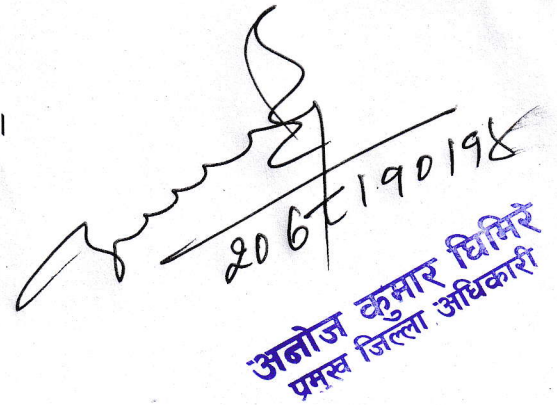 २०६८।१०।१४
अनोज कुमार घिमिरे
प्रमुख जिल्ला अधिकारी